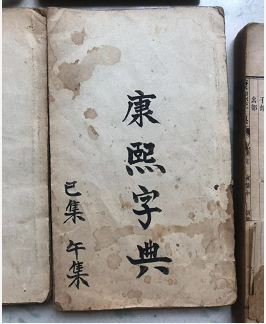 康熙字典
巳集 午集